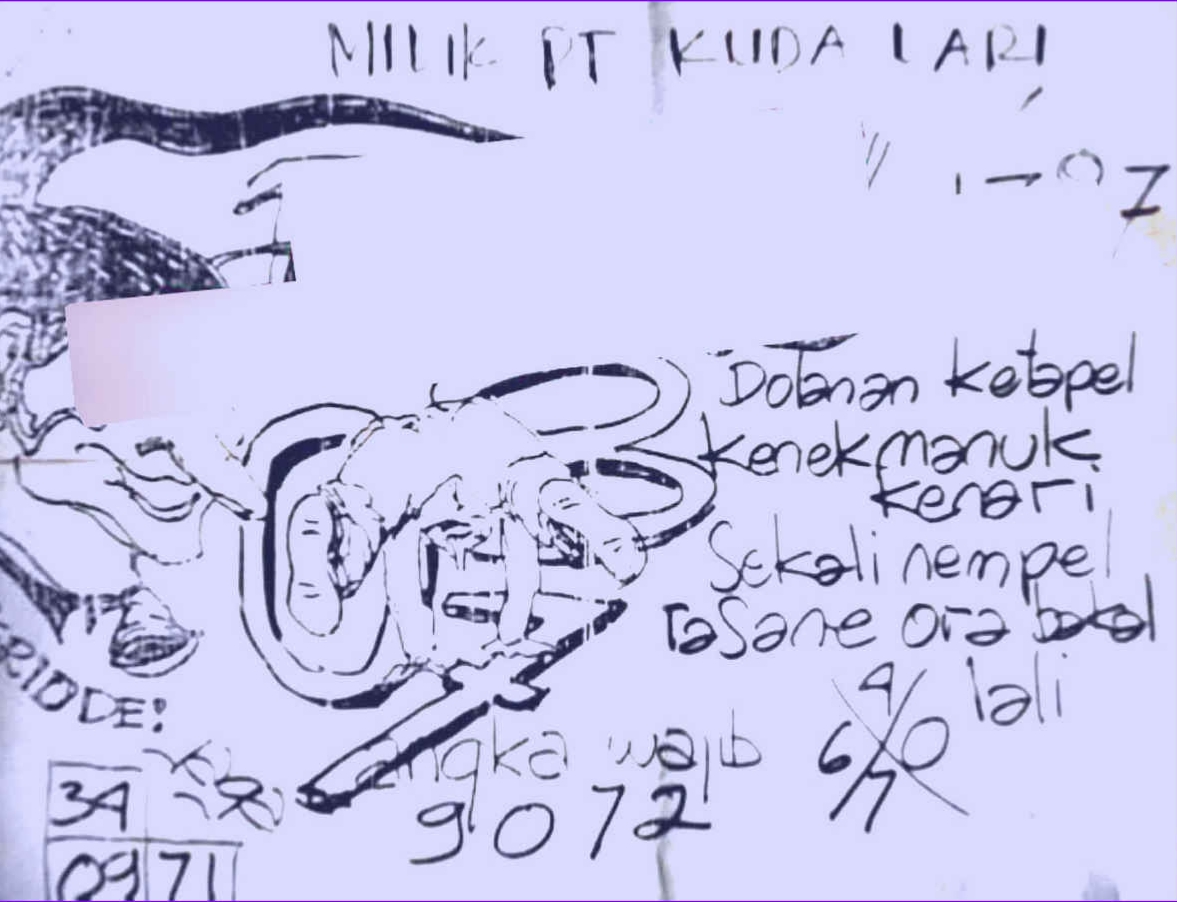 MILIK PT KUDA LARI
Dolanan ketapel
kenek manuk
kenari
Sekali nempel
rasane ora bakal
lali
RIODE:
angka wajib
9072
4
6 0
7
34
09 71